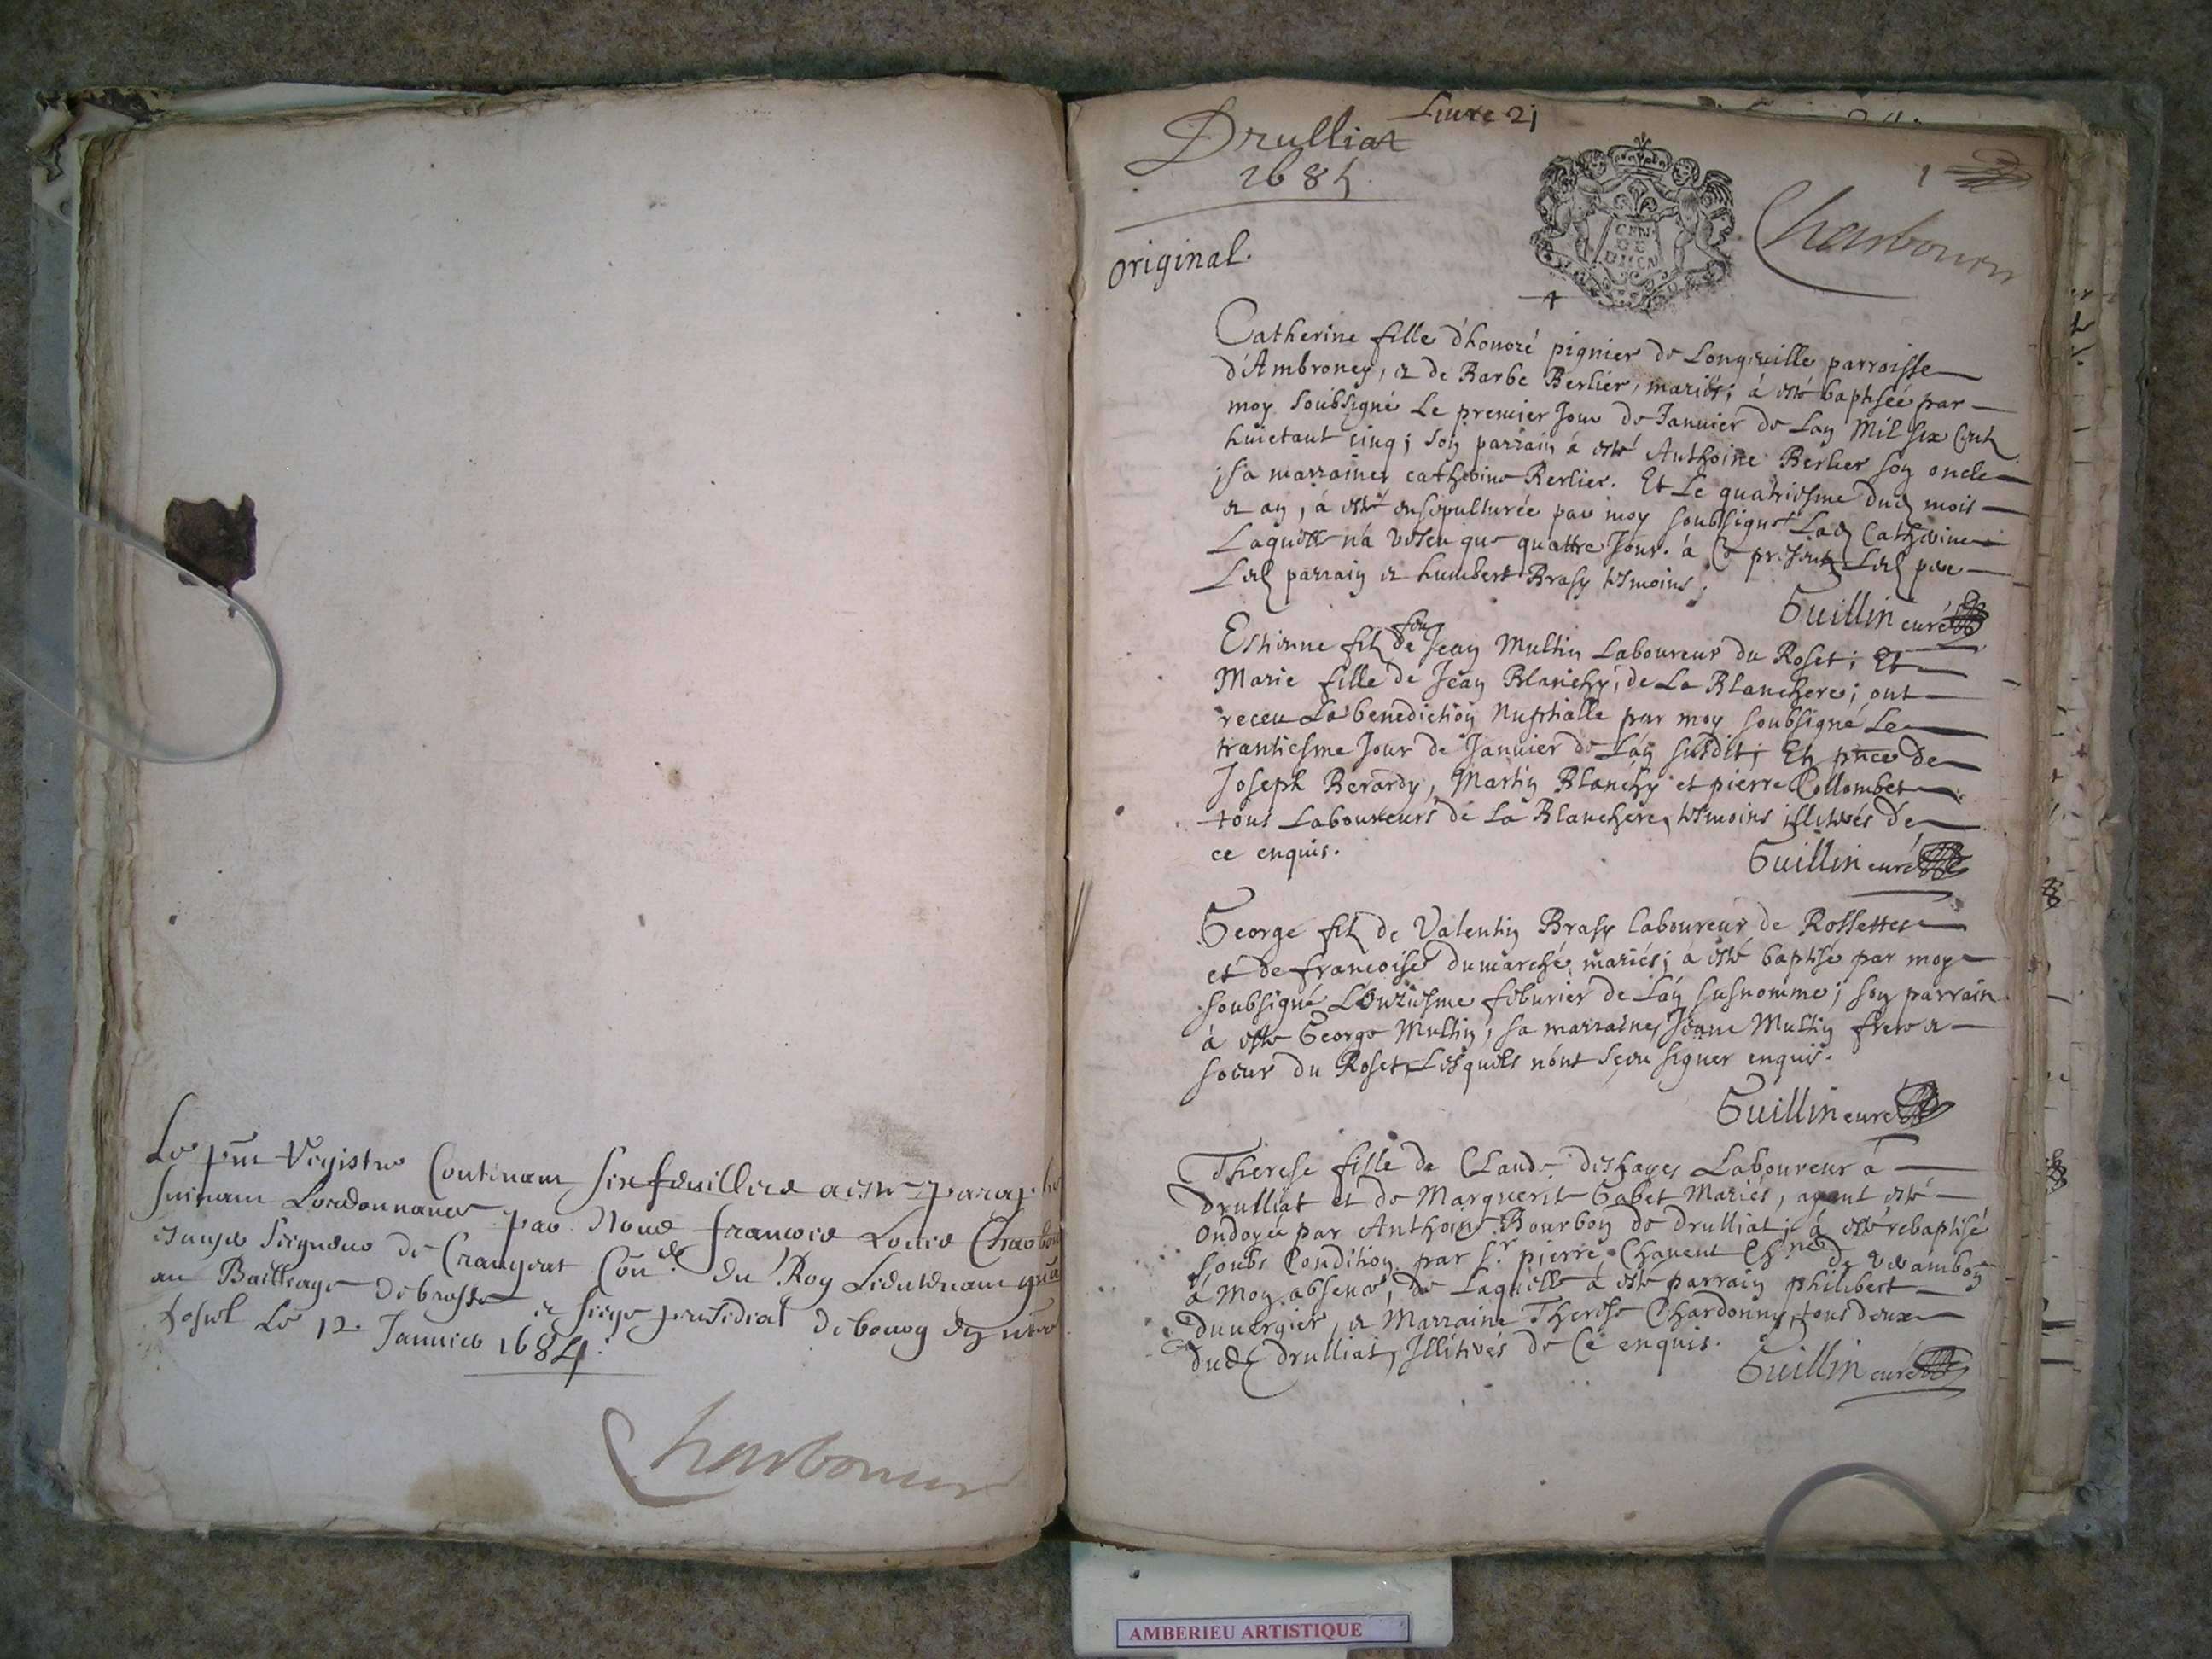 Le pnt Registre Contenant six feuillets a esté paraphé
suivant Lordonnance par Nous francois Louis Charbon
Seigneur de Crangeat Con.er du Roy Lieutenant gnal
au Bailliage de bresse et siege presidial de bourg en
hostel Le 12. Januier 1684.
Charbonnier
Liure 21
Drulliat
1685
1
original.
CEN.
DE
Charbonnier
Catherine fille d'honoré pignier de Longeuille parroisse
d'Ambroney, et de Barbe Berlier, mariés; à esté baptisée par
moy soubsigné Le premier Jour de Januier de Lan Mil six Cent
huictant cinq; son parrain à esté Anthoine Berlier son oncle
; sa marraine, catherine Berlier. Et Le quatriesme dud mois
et an, à esté ensepulturée par moy soubsigné Lad Catherine
Laquelle n'a vescu que quattre Jour. à Ce presents Led pere
Led parrain et humbert Brasy tesmoins.
Guillin curé
Estienne fils de feu Jean Multin Laboureur du Roset; Et
Marie fille de Jean Blanchy, de La Blanchere; ont
receu La benediction Nuptialle par moy soubsigné Le
trantiesme Jour de Januier de Lan susdit; En pnce de
Joseph Berardy, Martin Blanchy et pierre Collombet
tous Laboureurs de La Blanchere, tesmoins illiterés de
ce enquis.
Guillin curé
George fils de Valentin Brasy laboureur de Rossettes
et de francoise dumarché, mariés; à esté baptisé par moy
soubsigné L'onziesme feburier de Lan susnommé; son parrain
à esté George Multin, sa marraine, Jeane Multin frere et
soeur du Roset, Lesquels n'ont sceu signer enquis.
Guillin curé
Therese fille de Claude deshayes Laboureur à
Drulliat et de Marguerite Gabet Mariés, ayant esté
ondoyée par Anthoine Bourbon de Drulliat; à esté rebaptisé
soubs Condition par Sr pierre Chanent de varambon
à Moy absence, de Laquelle à esté parrain philibert
Duuergier, et Marraine Therese Chardonny, tous deux
dud Drulliat, Illiterés de Ce enquis.
Guillin curé
AMBERIEU ARTISTIQUE